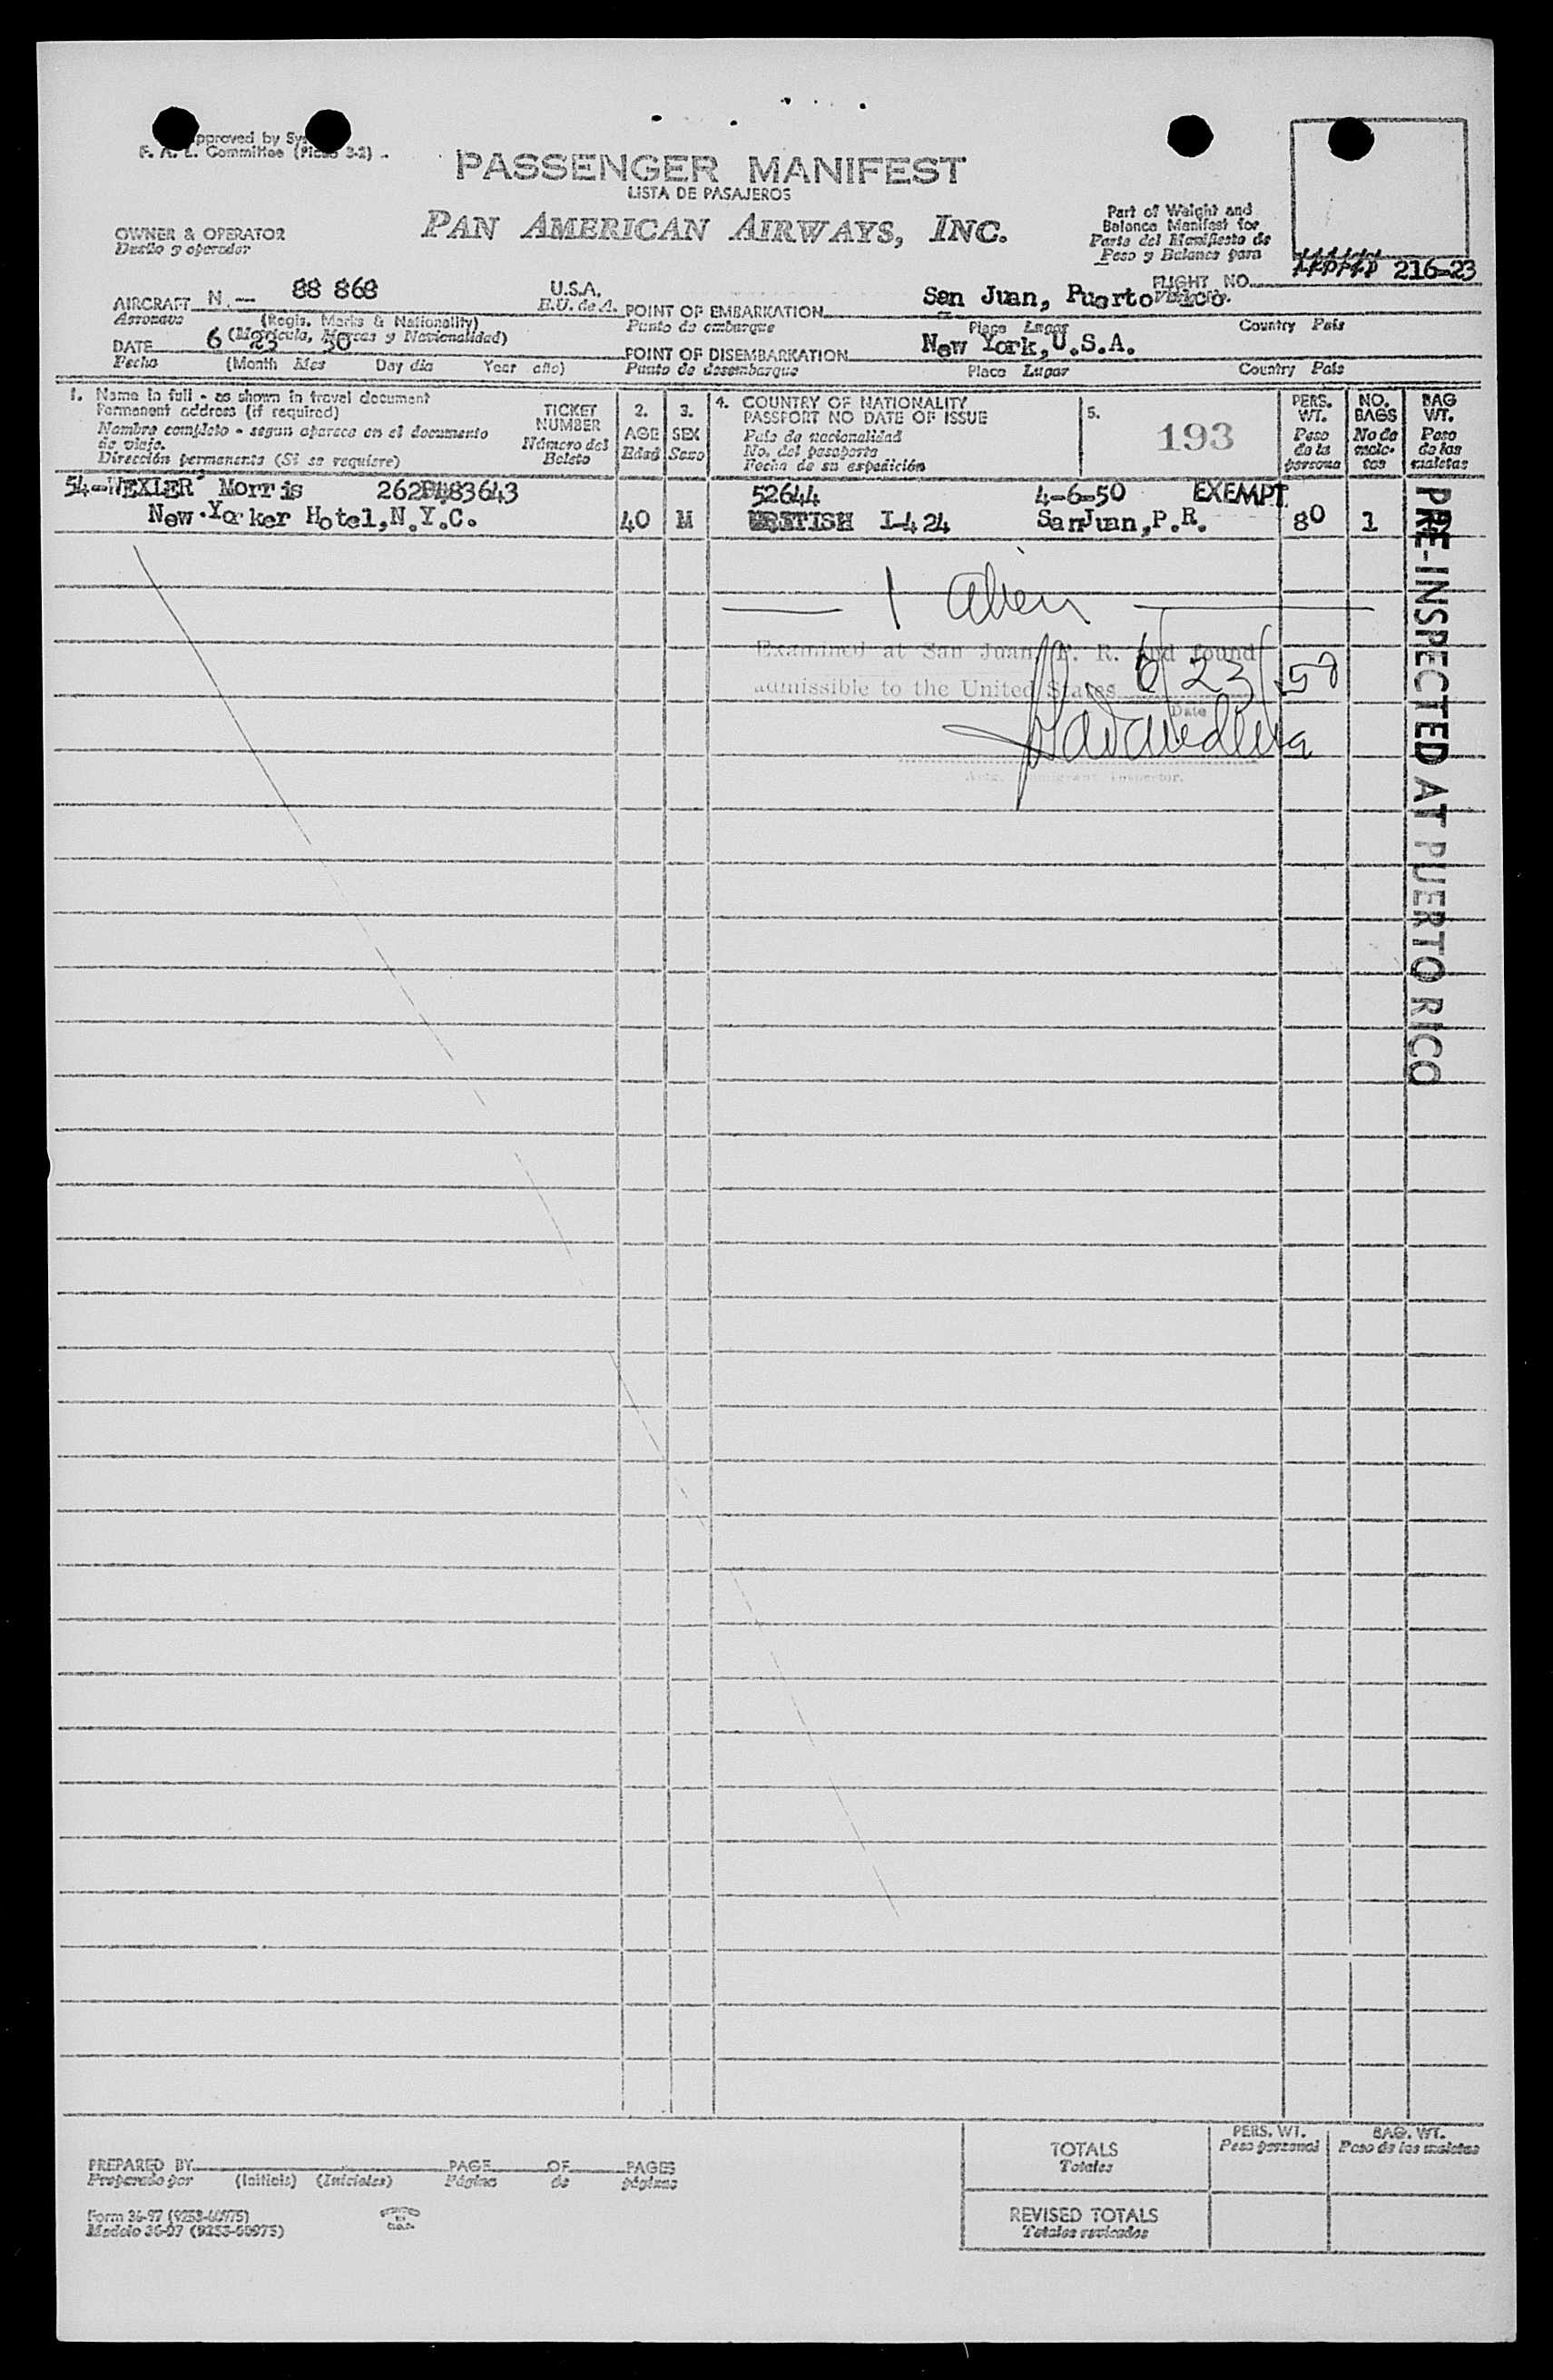 Approved by
F. A. L. Committee (Picao 3-2)
PASSENGER MANIFEST
LISTA DE PASAJEROS
PAN AMERICAN AIRWAYS, INC.
OWNER & OPERATOR
Dueño y operador
Part of Weight and
Balance Manifest for
Parte del Manifiesto de
Peso y Balance para
FLIGHT NO. 216-23
AIRCRAFT N.- 88 868 U.S.A.
Aeronave (Regis. Marks & Nationality) E.U. de A.
(Matrícula, Marcas y Nacionalidad)
POINT OF EMBARKATION San Juan, Puerto Rico.
Punto de embarque Place Lugar Country País
DATE 6 23 50
Fecha (Month Mes Day dia Year año)
POINT OF DISEMBARKATION New York, U.S.A.
Punto de desembarque Place Lugar Country País
1. Name in full - as shown in travel document
Permanent address (if required)
Nombre completo - segun aparece en el documento
de viaje.
Dirección permanente (Si se requiere)
TICKET
NUMBER
Número del
Boleto
2.
AGE
Edad
3.
SEX
Sexo
4. COUNTRY OF NATIONALITY
PASSPORT NO DATE OF ISSUE
País de nacionalidad
No. del pasaporte
Fecha de su expedición
5.
193
PERS.
WT.
Peso
de la
persona
NO.
BAGS
No de
male-
tas
BAG
WT.
Peso
de las
maletas
54-WEXLER Morris 262P483643 52644 4-6-50 EXEMPT
New Yorker Hotel, N.Y.C. 40 M BRITISH I-424 San Juan, P.R. 80 1
1 alien
Examined at San Juan, P. R. and found
admissible to the United States 6/23/50
Date
Immigrant Inspector.
PRE-INSPECTED AT PUERTO RICO
PREPARED BY PAGE OF PAGES
Preparado por (Initials) (Iniciales) Página de páginas
Form 36-97 (9253-60975)
Modelo 36-97 (9253-60975)
TOTALS
Totales
PERS. WT.
Peso personal
BAG. WT.
Peso de las maletas
REVISED TOTALS
Totales revisados